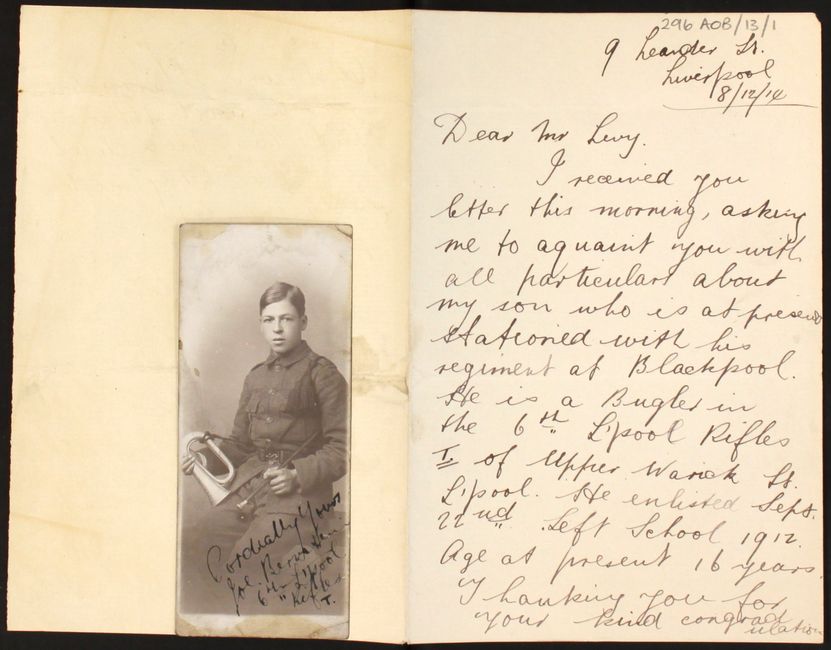 296 AOB/13/1
9 Leander St.
Liverpool
18/12/14
Dear Mr Levy.
I received you
letter this morning, asking
me to aquaint you with
all particulars about
my son who is at present
stationed with his
regiment at Blackpool.
He is a Bugler in
the 6th L'pool Rifles
T. of Upper Warick St.
L'pool. He enlisted Sept.
22nd. Left School 1912.
Age at present 16 years.
Thanking you for
your kind congrad
ulation
Cordially Yours
Joe.
6th L'pool
Rifles
T.